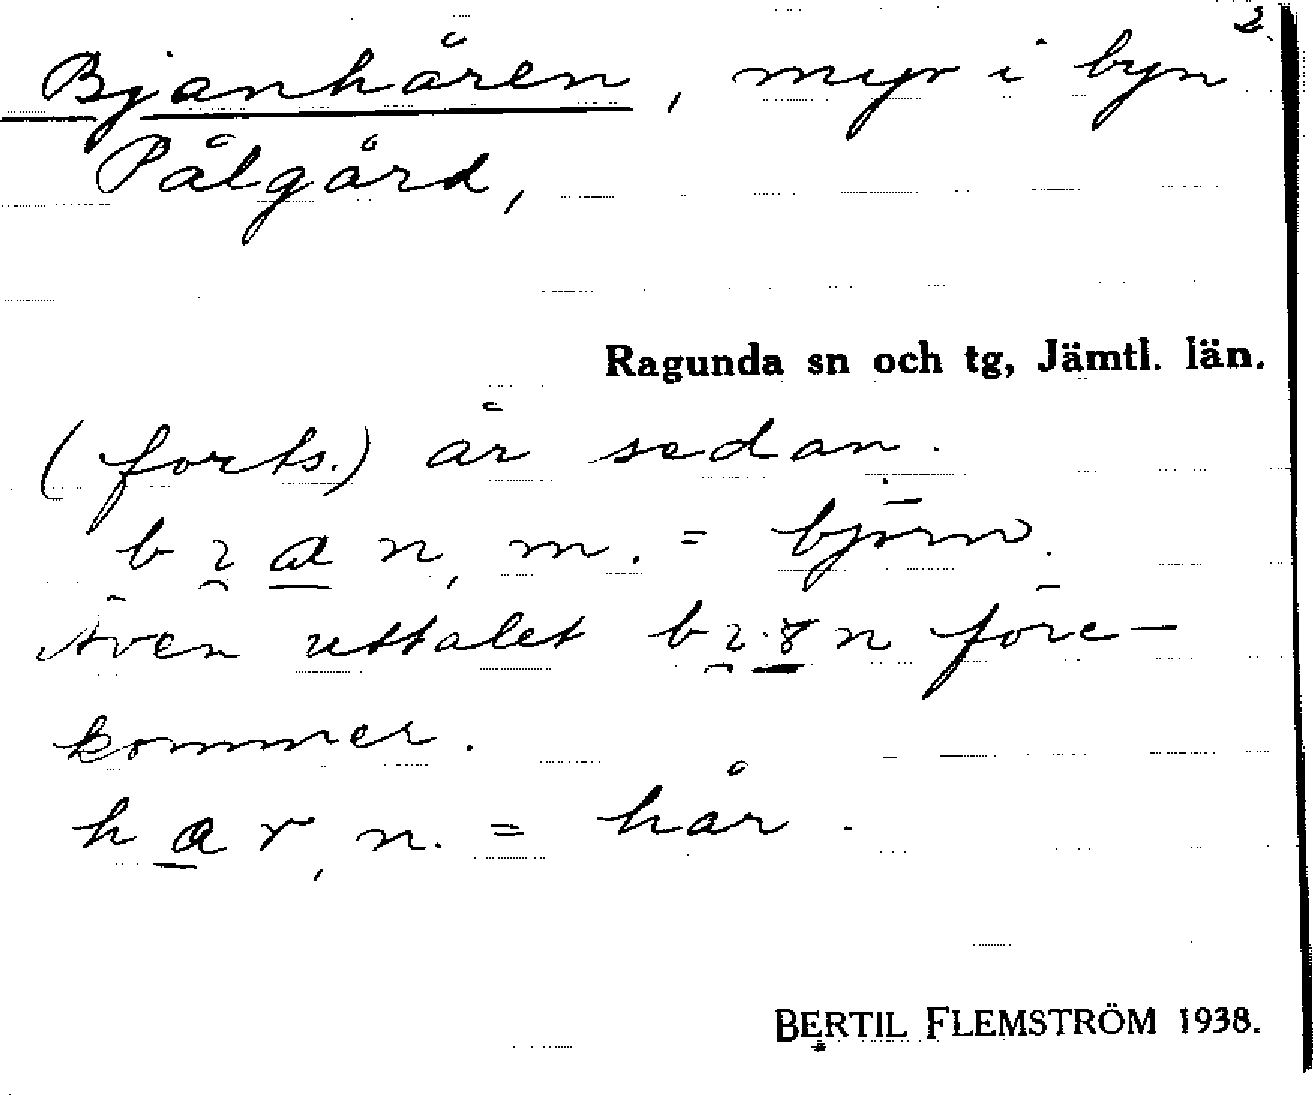 2.
Bjanhåren, myr i byn
Pålgård,
Ragunda sn och tg, Jämtl. län.
(forts.) år sedan.
b ı̯ a n, m. = björn.
Även uttalet b ı̯ ɤ n före-
kommer.
h a r, n. = hår.
BERTIL FLEMSTRÖM 1938.